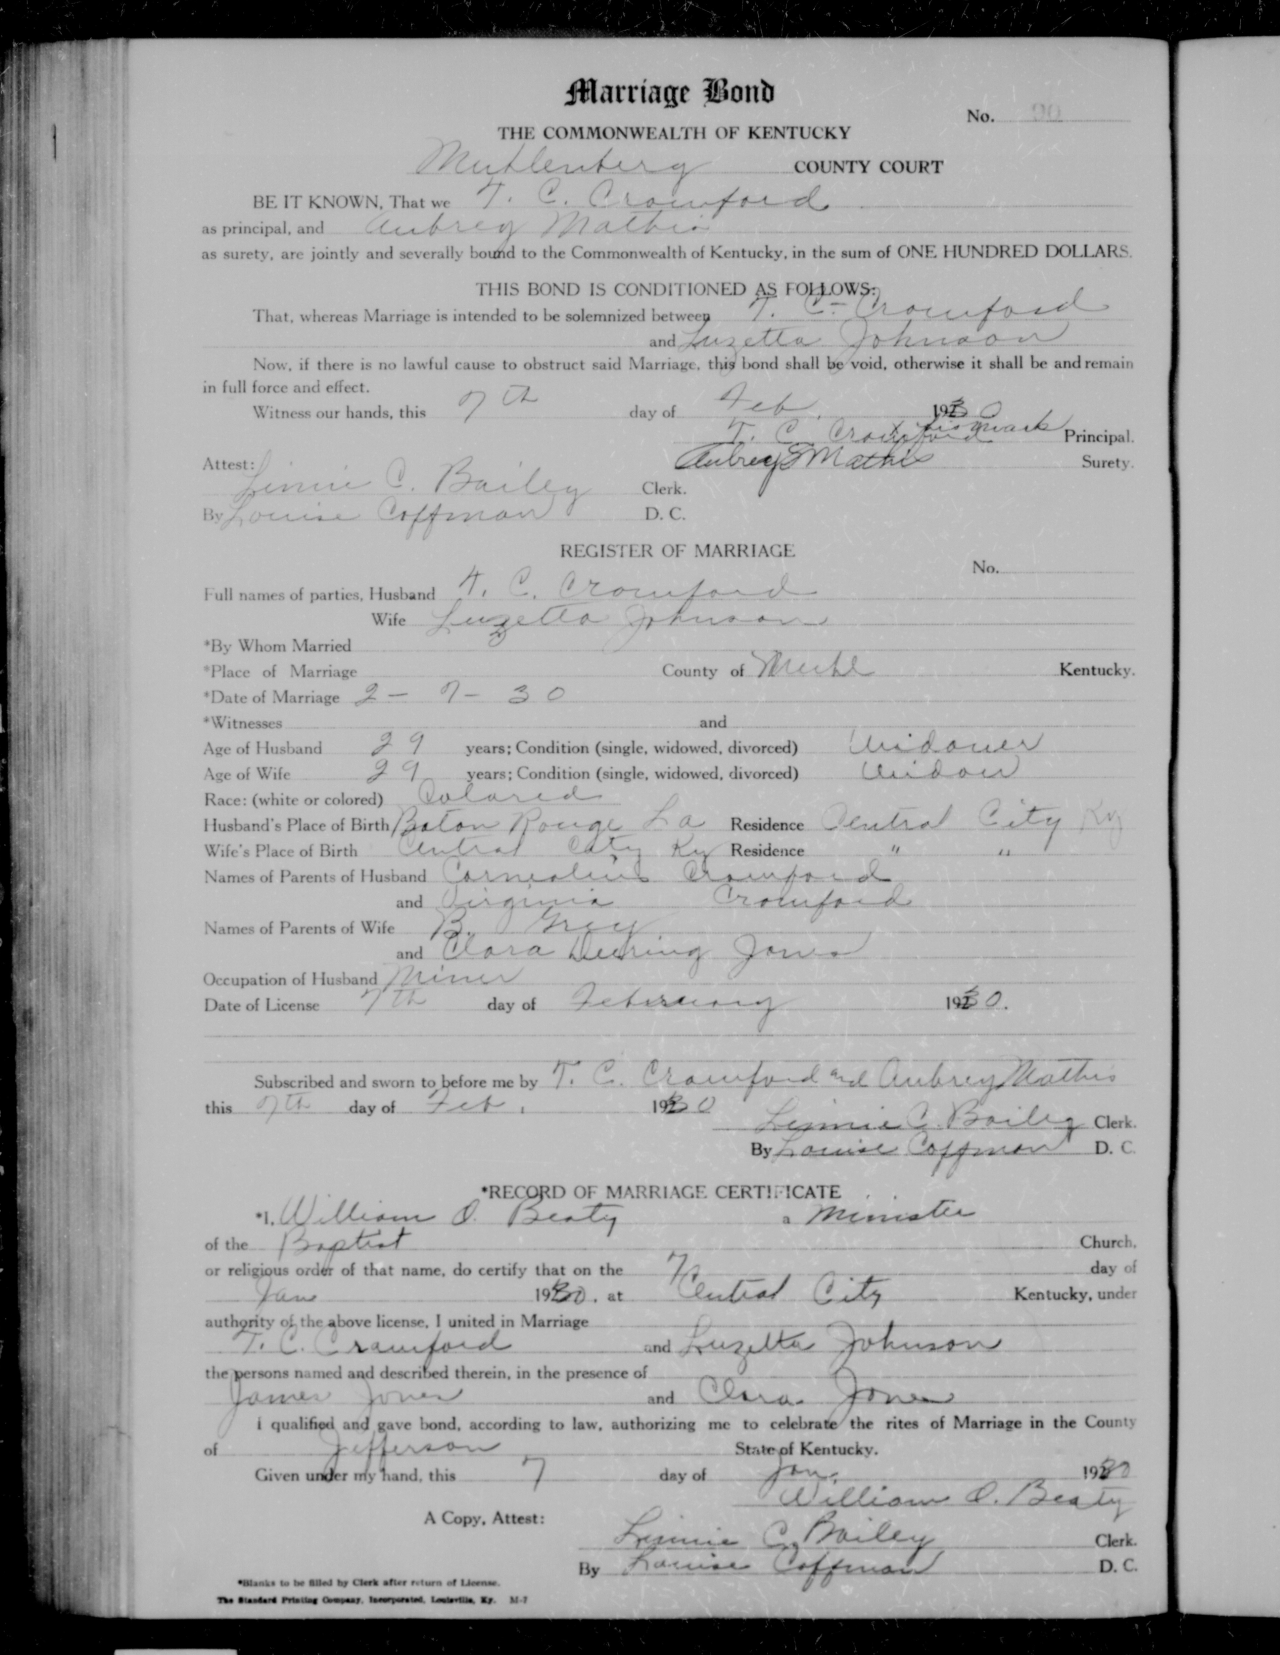 Marriage Bond
No. 90
THE COMMONWEALTH OF KENTUCKY
Muhlenberg COUNTY COURT
BE IT KNOWN, That we T. C. Crawford
as principal, and Aubrey Mathis
as surety, are jointly and severally bound to the Commonwealth of Kentucky, in the sum of ONE HUNDRED DOLLARS.
THIS BOND IS CONDITIONED AS FOLLOWS:
That, whereas Marriage is intended to be solemnized between T. C. Crawford
and Luzetta Johnson
Now, if there is no lawful cause to obstruct said Marriage, this bond shall be void, otherwise it shall be and remain
in full force and effect.
Witness our hands, this 7th day of Feb. 1930
T. C. Crawford x his mark Principal.
Aubrey S Mathis Surety.
Attest: Linnie C. Bailey Clerk.
By Louise Coffman D. C.
REGISTER OF MARRIAGE
No.
Full names of parties, Husband T. C. Crawford
Wife Luzetta Johnson
*By Whom Married
*Place of Marriage County of Muhl Kentucky.
*Date of Marriage 2 - 7 - 30
*Witnesses and
Age of Husband 29 years; Condition (single, widowed, divorced) Widower
Age of Wife 29 years; Condition (single, widowed, divorced) Widow
Race: (white or colored) Colored
Husband's Place of Birth Baton Rouge La Residence Central City Ky
Wife's Place of Birth Central City Ky Residence " "
Names of Parents of Husband Cornealius Crawford
and Virginia Crawford
Names of Parents of Wife B. Gray
and Clara Deering Jones
Occupation of Husband Miner
Date of License 7th day of February 1930.
Subscribed and sworn to before me by T. C. Crawford and Aubrey Mathis
this 7th day of Feb. 1930
Linnie C. Bailey Clerk.
By Louise Coffman D. C.
*RECORD OF MARRIAGE CERTIFICATE
*I, William O. Beaty a Minister
of the Baptist Church,
or religious order of that name, do certify that on the 7 day of
Jan 1930, at Central City Kentucky, under
authority of the above license, I united in Marriage
T. C. Crawford and Luzetta Johnson
the persons named and described therein, in the presence of
James Jones and Clara Jones
I qualified and gave bond, according to law, authorizing me to celebrate the rites of Marriage in the County
of Jefferson State of Kentucky.
Given under my hand, this 7 day of Jan. 1930
William O. Beaty
A Copy, Attest:
Linnie C. Bailey Clerk.
By Louise Coffman D. C.
*Blanks to be filled by Clerk after return of License.
The Standard Printing Company, Incorporated, Louisville, Ky. M-7